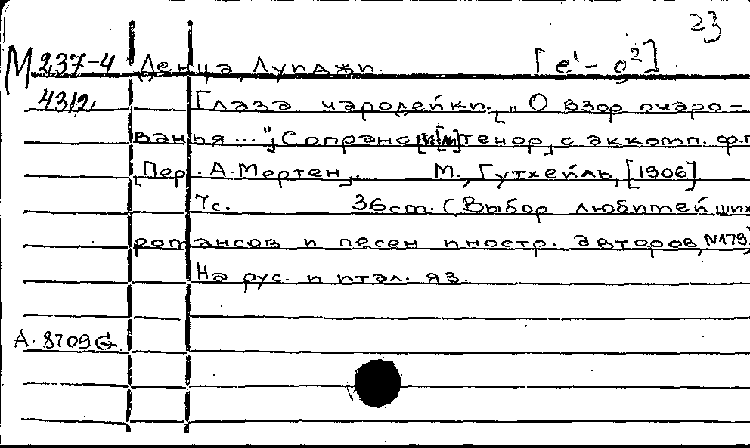 23
М 237-4 Денца, Луиджи. [e¹ - g²]
4312. Глаза чародейки. „О взор очаро-
ванья..."; Сопрано [или] тенор, с аккомп. ф.п.
[Пер. А. Мертен]. М., Гутхейль, [1906]
7с. 36см. (Выбор любитейших
романсов и песен иностр. авторов, №179)
На рус. и итал. яз.
А. 8709 G